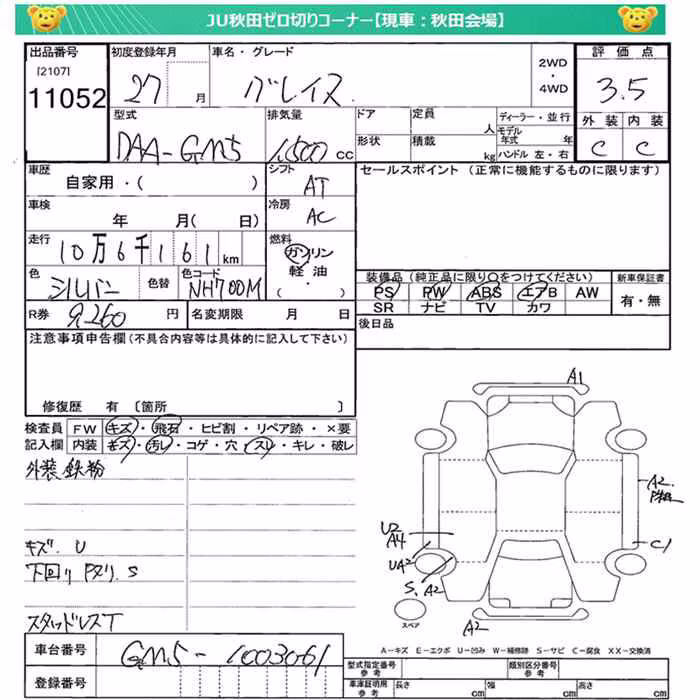 JU秋田ゼロ切りコーナー【現車：秋田会場】
出品番号 [2107] 11052
初度登録年月 27 月
車名・グレード グレイス
2WD・4WD
評価点 3.5
外装 C 内装 C
型式 DAA-GM5
排気量 1,500 cc
ドア 形状
定員 人 積載 kg
ディーラー・並行
モデル年式 年
ハンドル 左・右
車歴 自家用・( )
シフト AT
車検 年 月( 日)
冷房 AC
走行 10万6千161km
燃料 ガソリン 軽油 ( )
色 シルバー 色替 色コード NH700M
R券 9,260 円 名変期限 月 日
セールスポイント (正常に機能するものに限ります)
装備品 (純正品に限り○をつけてください)
PS PW ABS エアB AW
SR ナビ TV カワ
新車保証書 有・無
後日品
注意事項申告欄 (不具合内容等は具体的に記入して下さい)
修復歴 有 〔箇所 〕
検査員記入欄
FW キズ・飛石・ヒビ割・リペア跡・×要
内装 キズ・汚レ・コゲ・穴・スレ・キレ・破レ
外装 鉄粉
キズ. U
下回り サビ. S
スタッドレスT
A1
A2
U2
A4
UA2
S. A2
C1
A2
スペア
A-キズ E-エクボ U-凹み W-補修跡 S-サビ C-腐食 XX-交換済
車台番号 GM5-1003061
登録番号
型式指定番号 参考
類別区分番号 参考
車庫証明用 参考 長さ cm 幅 cm 高さ cm